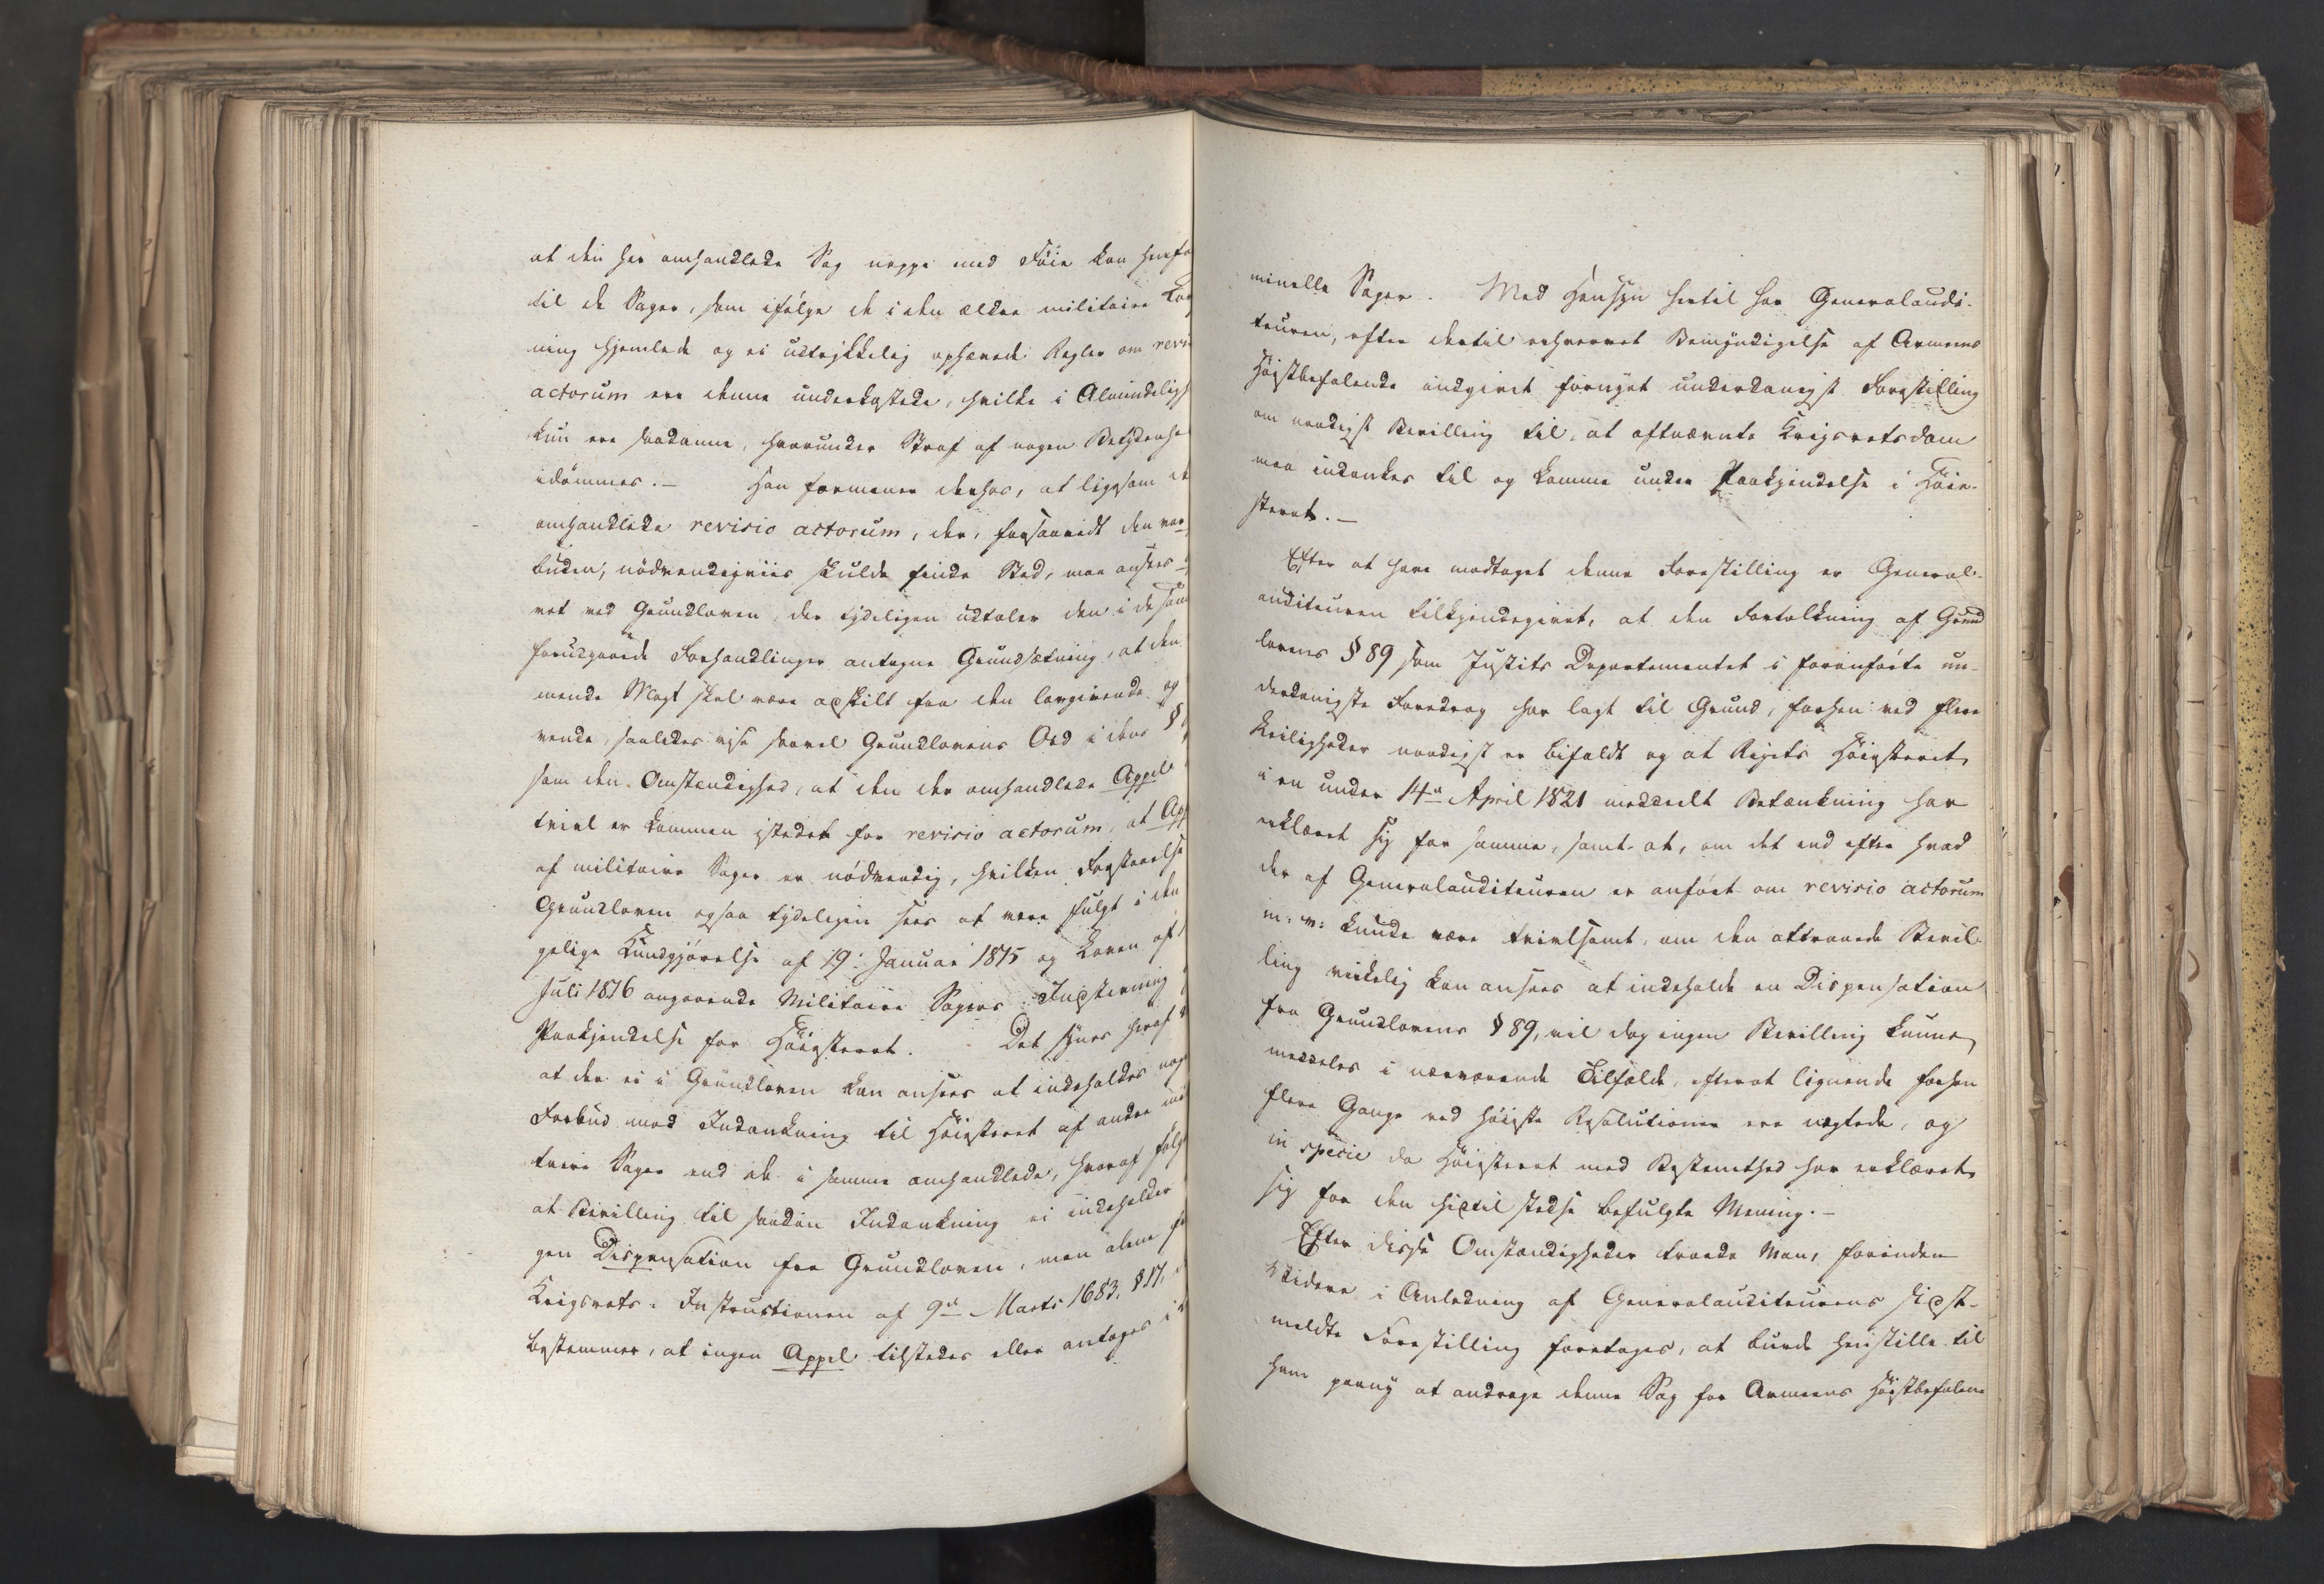 at den her omhandlede Sag neppe med Føie kan henfø
til de Sager, som ifølge de i den ældre militaire Lov
ning hjemlede og ei udtrykkelig ophævede Regler om revi
actorum ere denne underkastede, hvilke i Almindeligh
kun ere saadanne, hvorunder Straf af nogen Betydenhe
idømmes. – Han formener derhos, at ligesom de
omhandlede revisio actorum, der, forsaavidt den var
buden, nødvendigviis skulde finde Sted, maa ansees
vet ved Grundloven, der tydeligen udtaler den i de sam
forudgaaede Forhandlinger antagne Grundsætning, at den
mende Magt skal være adskilt fra den lovgivende og
vende, saaledes vise saavel Grundlovens Ord i dens §
som den Omstændighed, at den der omhandlede Appel
tvivl er kommen istedet for revisio actorum, at App
af militaire Sager er nødvendig, hvilken Forstaaelse
Grundloven ogsaa tydeligen sees at være fulgt i den
gelige Kundgjørelse af 19: Januar 1815 og Loven af
Juli 1816 angaaende Militaire Sagers Indstevning
Paakjendelse for Høiesteret. – Det synes heraf
at der ei i Grundloven kan ansees at indeholdes nog
Forbud mod Indankning til Høiesteret af andre mi
taire Sager end de i samme omhandlede, hvoraf følg
at Bevilling til saadan Indankning ei indeholder
gen Dispensation fra Grundloven, men alene fr
Krigsrets-Instructionen af 9de Marts 1683, §17,
bestemmer, at ingen Appel tilstedes eller antages i
minelle Sager. Med Hensyn hertil har Generalaudi-
teuren, efter dertil erhvervet Bemyndigelse af Armeens
Høistbefalende indgivet fornyet underdanigst Forestilling
om naadigst Bevilling til, at oftnævnte Krigsretsdom
maa indankes til og komme under Paakjendelse i Høie-
steret. –
Efter at have modtaget denne Forestilling er General-
auditeuren tilkjendegivet, at den Fortolkning af Grund
lovens § 89 som Justits Departementet i foranførte un-
derdanigste Foredrag har lagt til Grund, forhen ved flere
Leiligheder naadigst er bifaldt og at Rigets Høiesteret
i en under 14de April 1821 meddeelt Betænkning har
erklæret sig for samme, samt at, om det end efter hvad
der af Generalauditeuren er anført om revisio actorum
m: v: kunde være tvivlsomt, om den attraaede Bevil-
ling virkelig kan ansees at indeholde en Dispensation
fra Grundlovens § 89, vil dog ingen Bevilling kunne
meddeles i nærværende Tilfælde, efterat lignende forhen
flere Gange ved høieste Resolutioner ere nægtede, og
in specie da Høiesteret med Bestemthed har erklæret
sig for den hidtil stedse befulgte Mening. –
Efter disse Omstændigheder troede Man, forinden
Videre i Anledning af Generalauditeurens sidst-
meldte Forestilling foretages, at burde henstille til
ham paany at andrage denne Sag for Armeens Høistbefalen